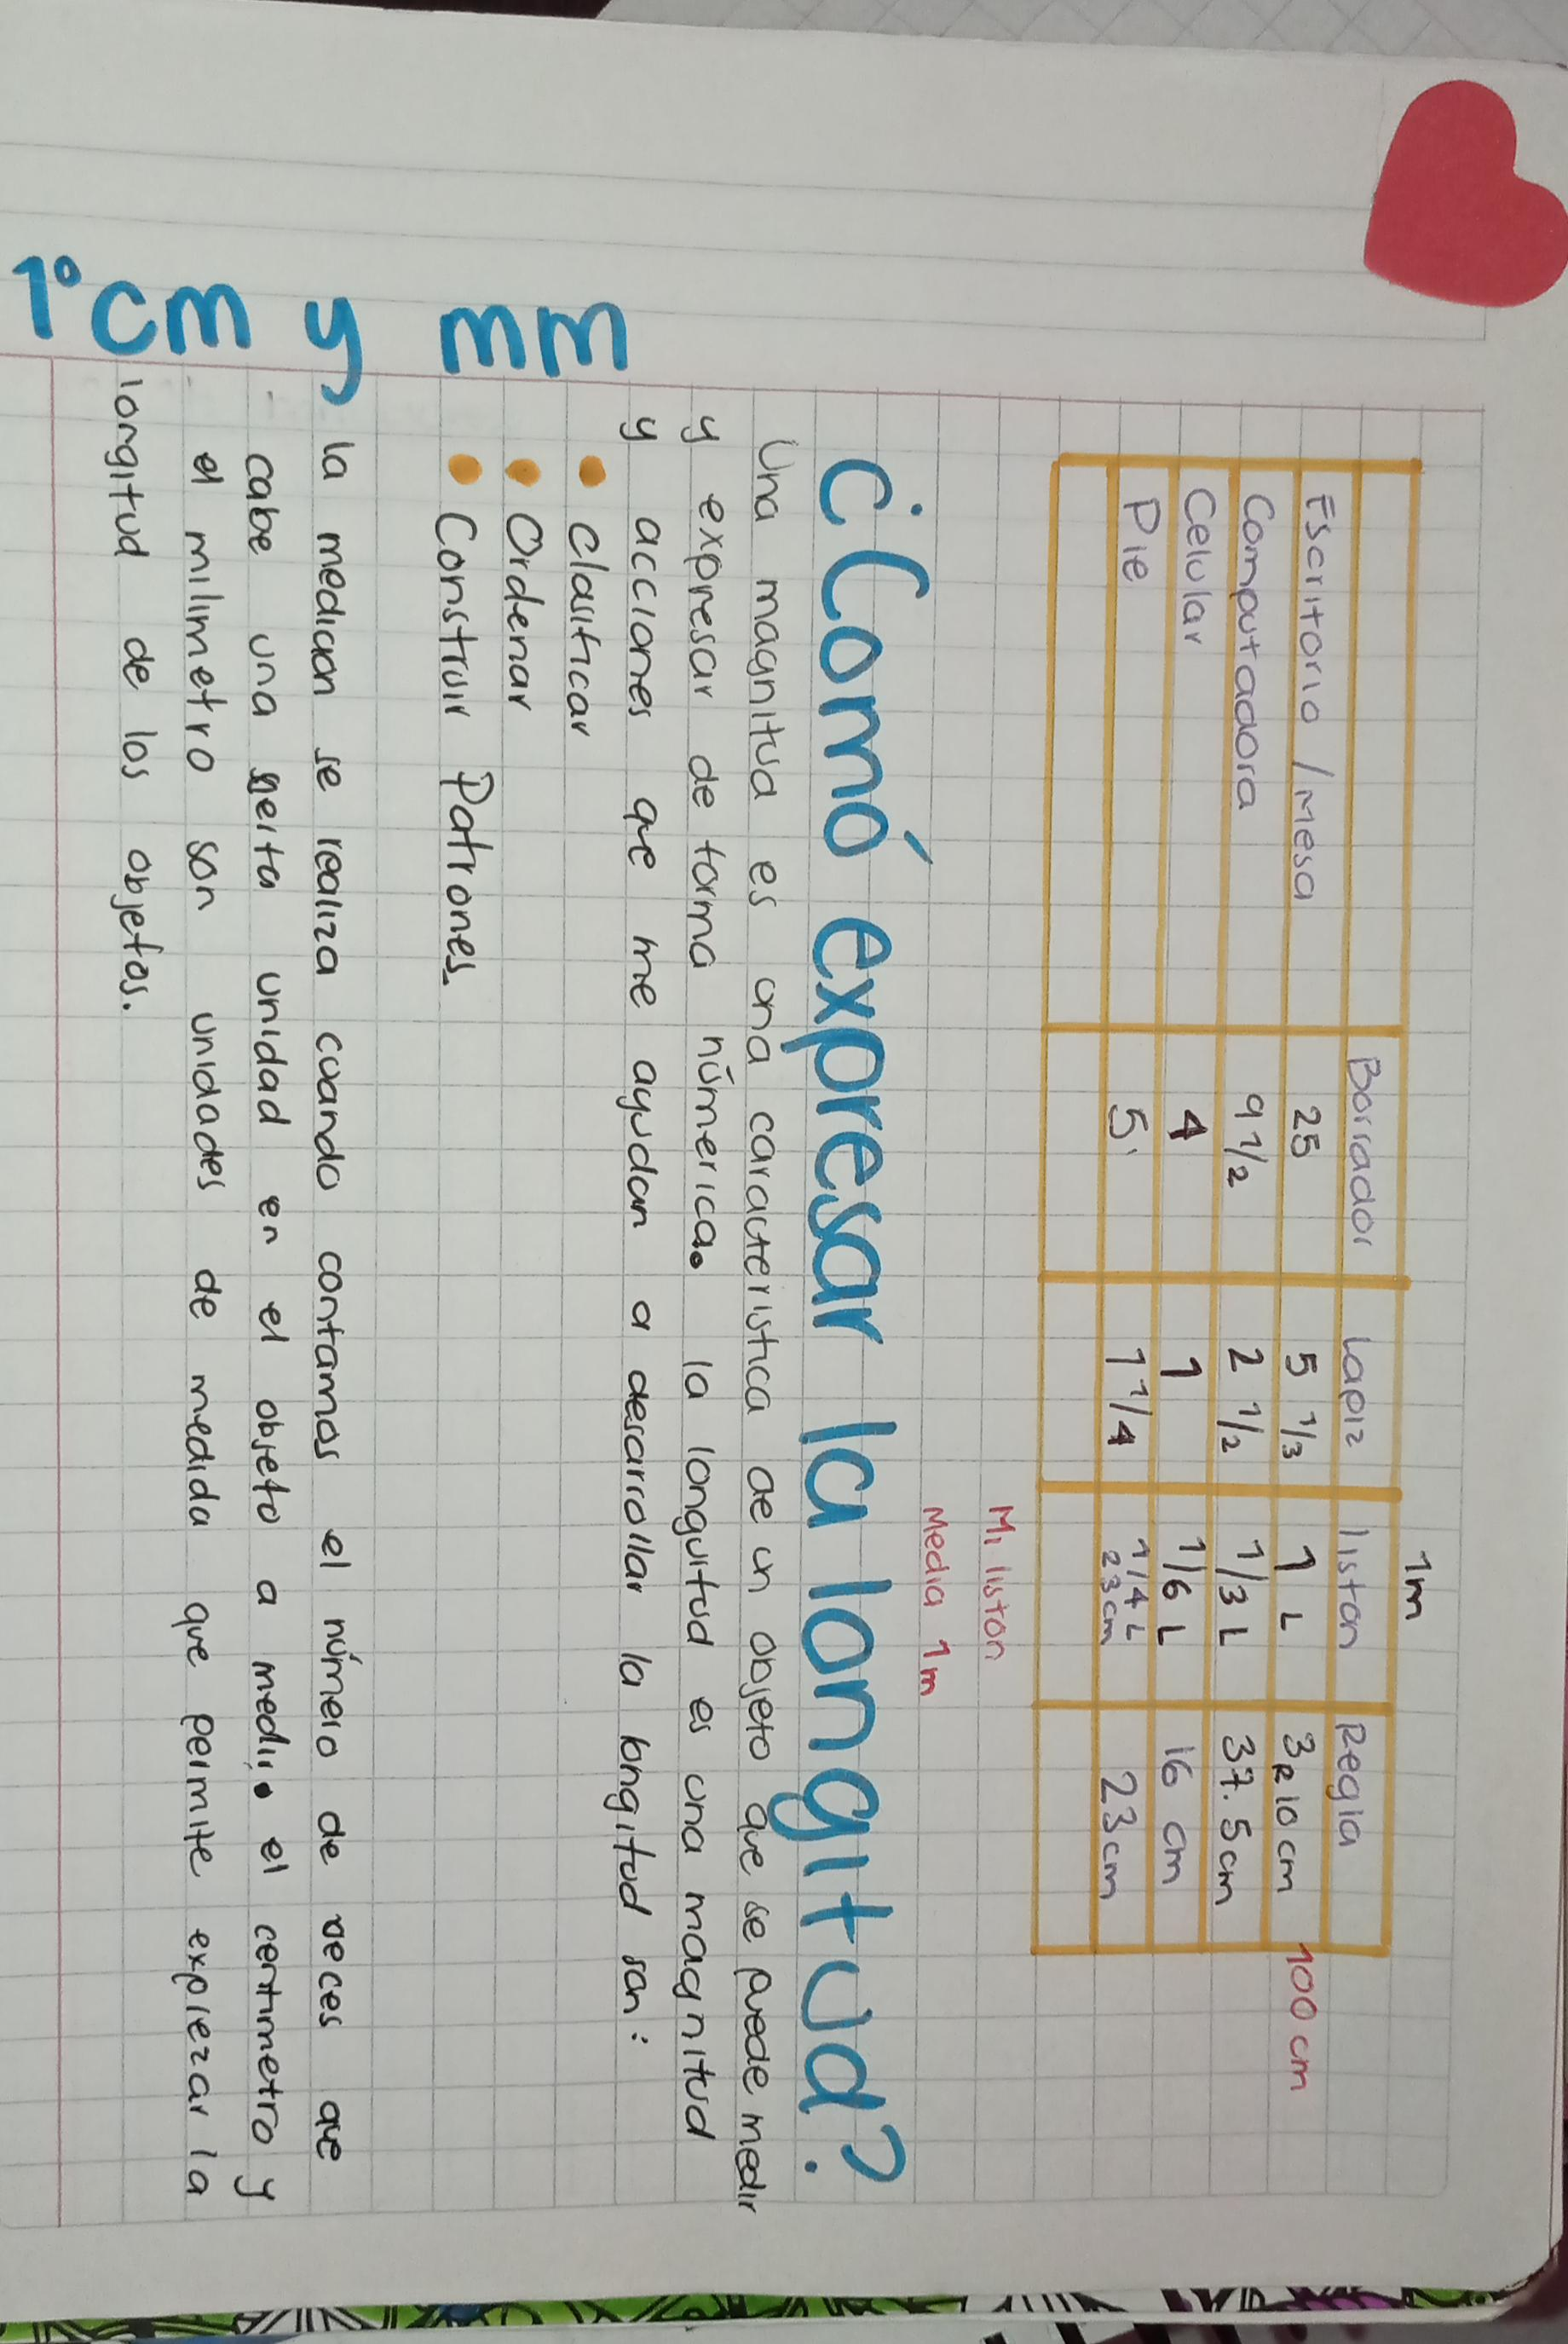 1m
Borrador Lapiz liston Regla
Escritorio / Mesa 25 5 1/3 1 L 3R10cm 100 cm
Computadora 9 1/2 2 1/2 1/3 L 37.5cm
Celular 4 1 1/6 L 16 cm
Pie 5 1 1/4 1/4 L 23cm
23cm
Mi liston
Media 1m
¿Comó expresar la longitud?
Una magnitud es una caracteristica de un objeto que se puede medir
y expresar de forma númerica. la longuitud es una magnitud
y acciones que me ayudan a desarrollar la longitud son:
• clasificar
• Ordenar
• Construir Patrones.
1° cm y mm
la medicion se realiza cuando contamos el número de veces que
cabe una seirta unidad en el objeto a medir. el centimetro y
el milimetro son unidades de medida que permite exprezar la
longitud de los objetos.